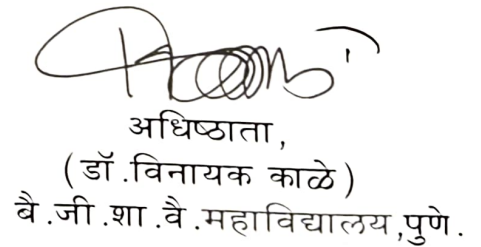 अधिष्ठाता,
(डॉ.विनायक काळे)
बै.जी.शा.वै.महाविद्यालय,पुणे.